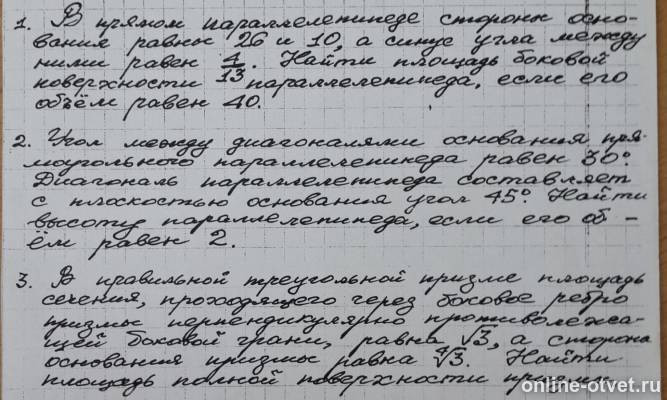 1. В прямом параллелепипеде стороны осно-
вания равны 26 и 10, а синус угла между
ними равен 4/13. Найти площадь боковой
поверхности параллелепипеда, если его
объём равен 40.
2. Угол между диагоналями основания пря-
моугольного параллелепипеда равен 30°.
Диагональ параллелепипеда составляет
с плоскостью основания угол 45°. Найти
высоту параллелепипеда, если его об-
ём равен 2.
3. В правильной треугольной призме площадь
сечения, проходящего через боковое ребро
призмы перпендикулярно противолежа-
щей боковой грани, равна √3, а сторона
основания призмы равна ∜3. Найти
площадь полной поверхности призмы.
online-otvet.ru